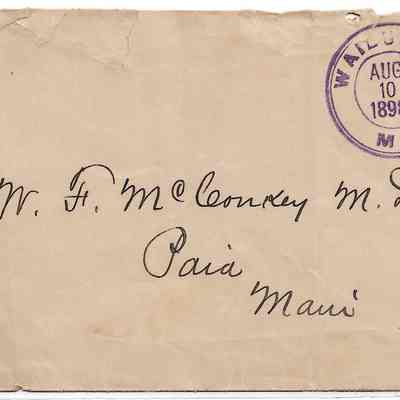 WAILU
AUG
10
1898
M
W. F. McConkey M.
Paia
Maui